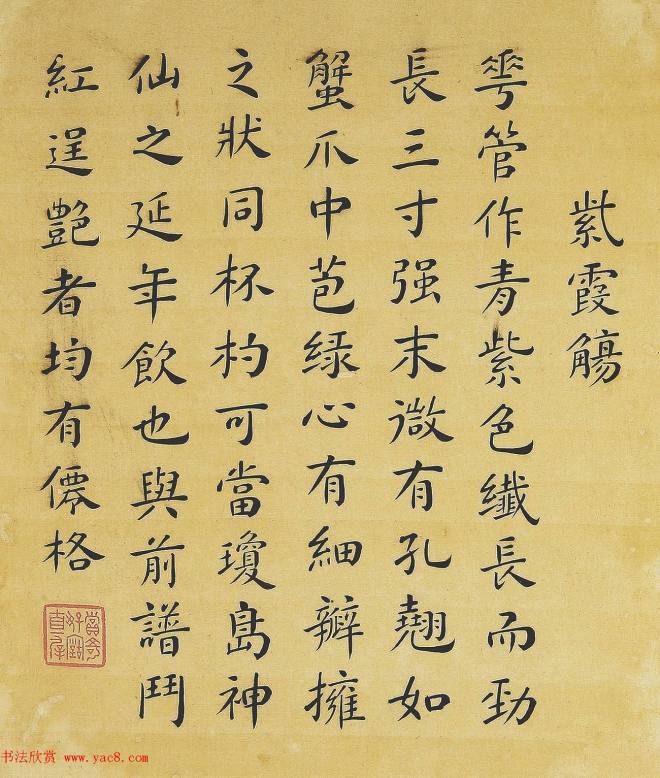 紫霞觴
華管作青紫色纖長而勁
長三寸强末微有孔翹如
蟹爪中苞緑心有細瓣擁
之狀同杯杓可當瓊島神
仙之延年飲也與前譜鬥
紅逞艷者均有僊格
书法欣赏 www.yac8.com